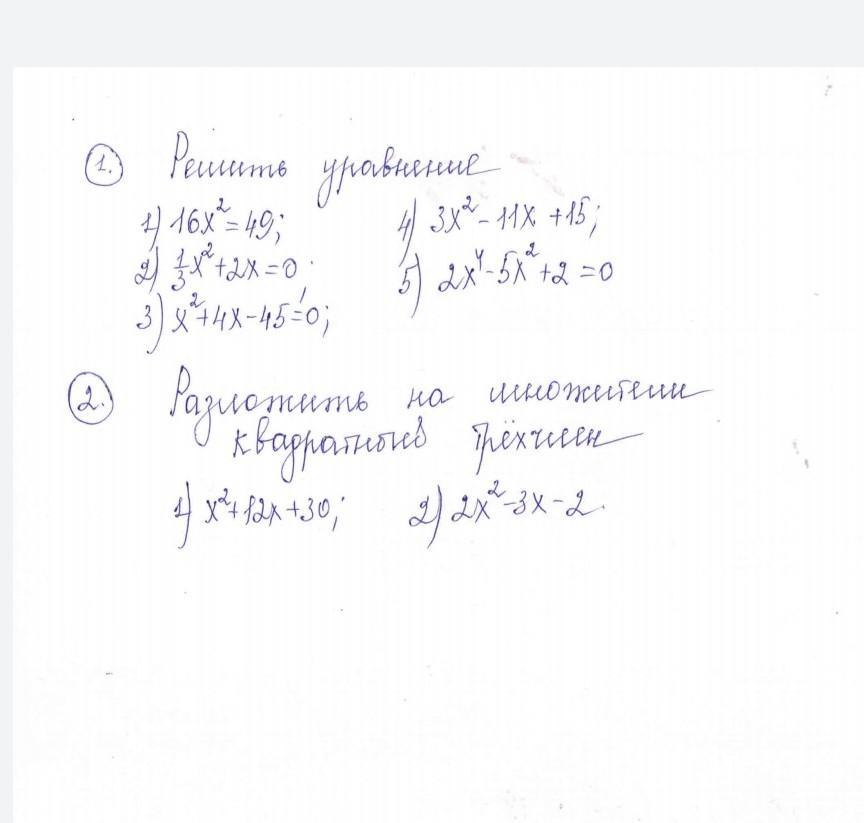 1. Решить уравнение
1) 16x² = 49;
2) 1/3 x² + 2x = 0;
3) x² + 4x - 45 = 0;
4) 3x² - 11x + 15;
5) 2x⁴ - 5x² + 2 = 0
2. Разложить на множители
квадратный трёхчлен
1) x² + 12x + 30;
2) 2x² - 3x - 2.